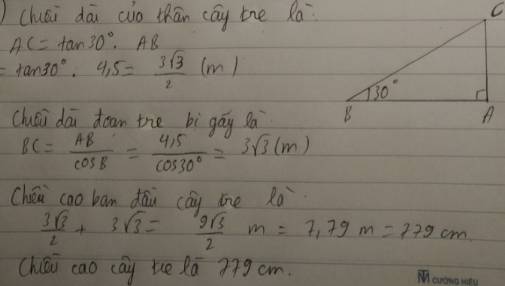 ) Chiều dài của thân cây tre là:
AC = tan30°. AB
= tan30°. 4,5 = 3√3/2 (m)
Chiều dài đoạn tre bị gãy là
BC = AB/cosB = 4,5/cos30° = 3√3 (m)
Chiều cao ban đầu cây tre là:
3√3/2 + 3√3 = 9√3/2 m = 7,79 m = 779 cm.
Chiều cao cây tre là 779 cm.
C
30°
B
A
CƯỜNG HIẾU